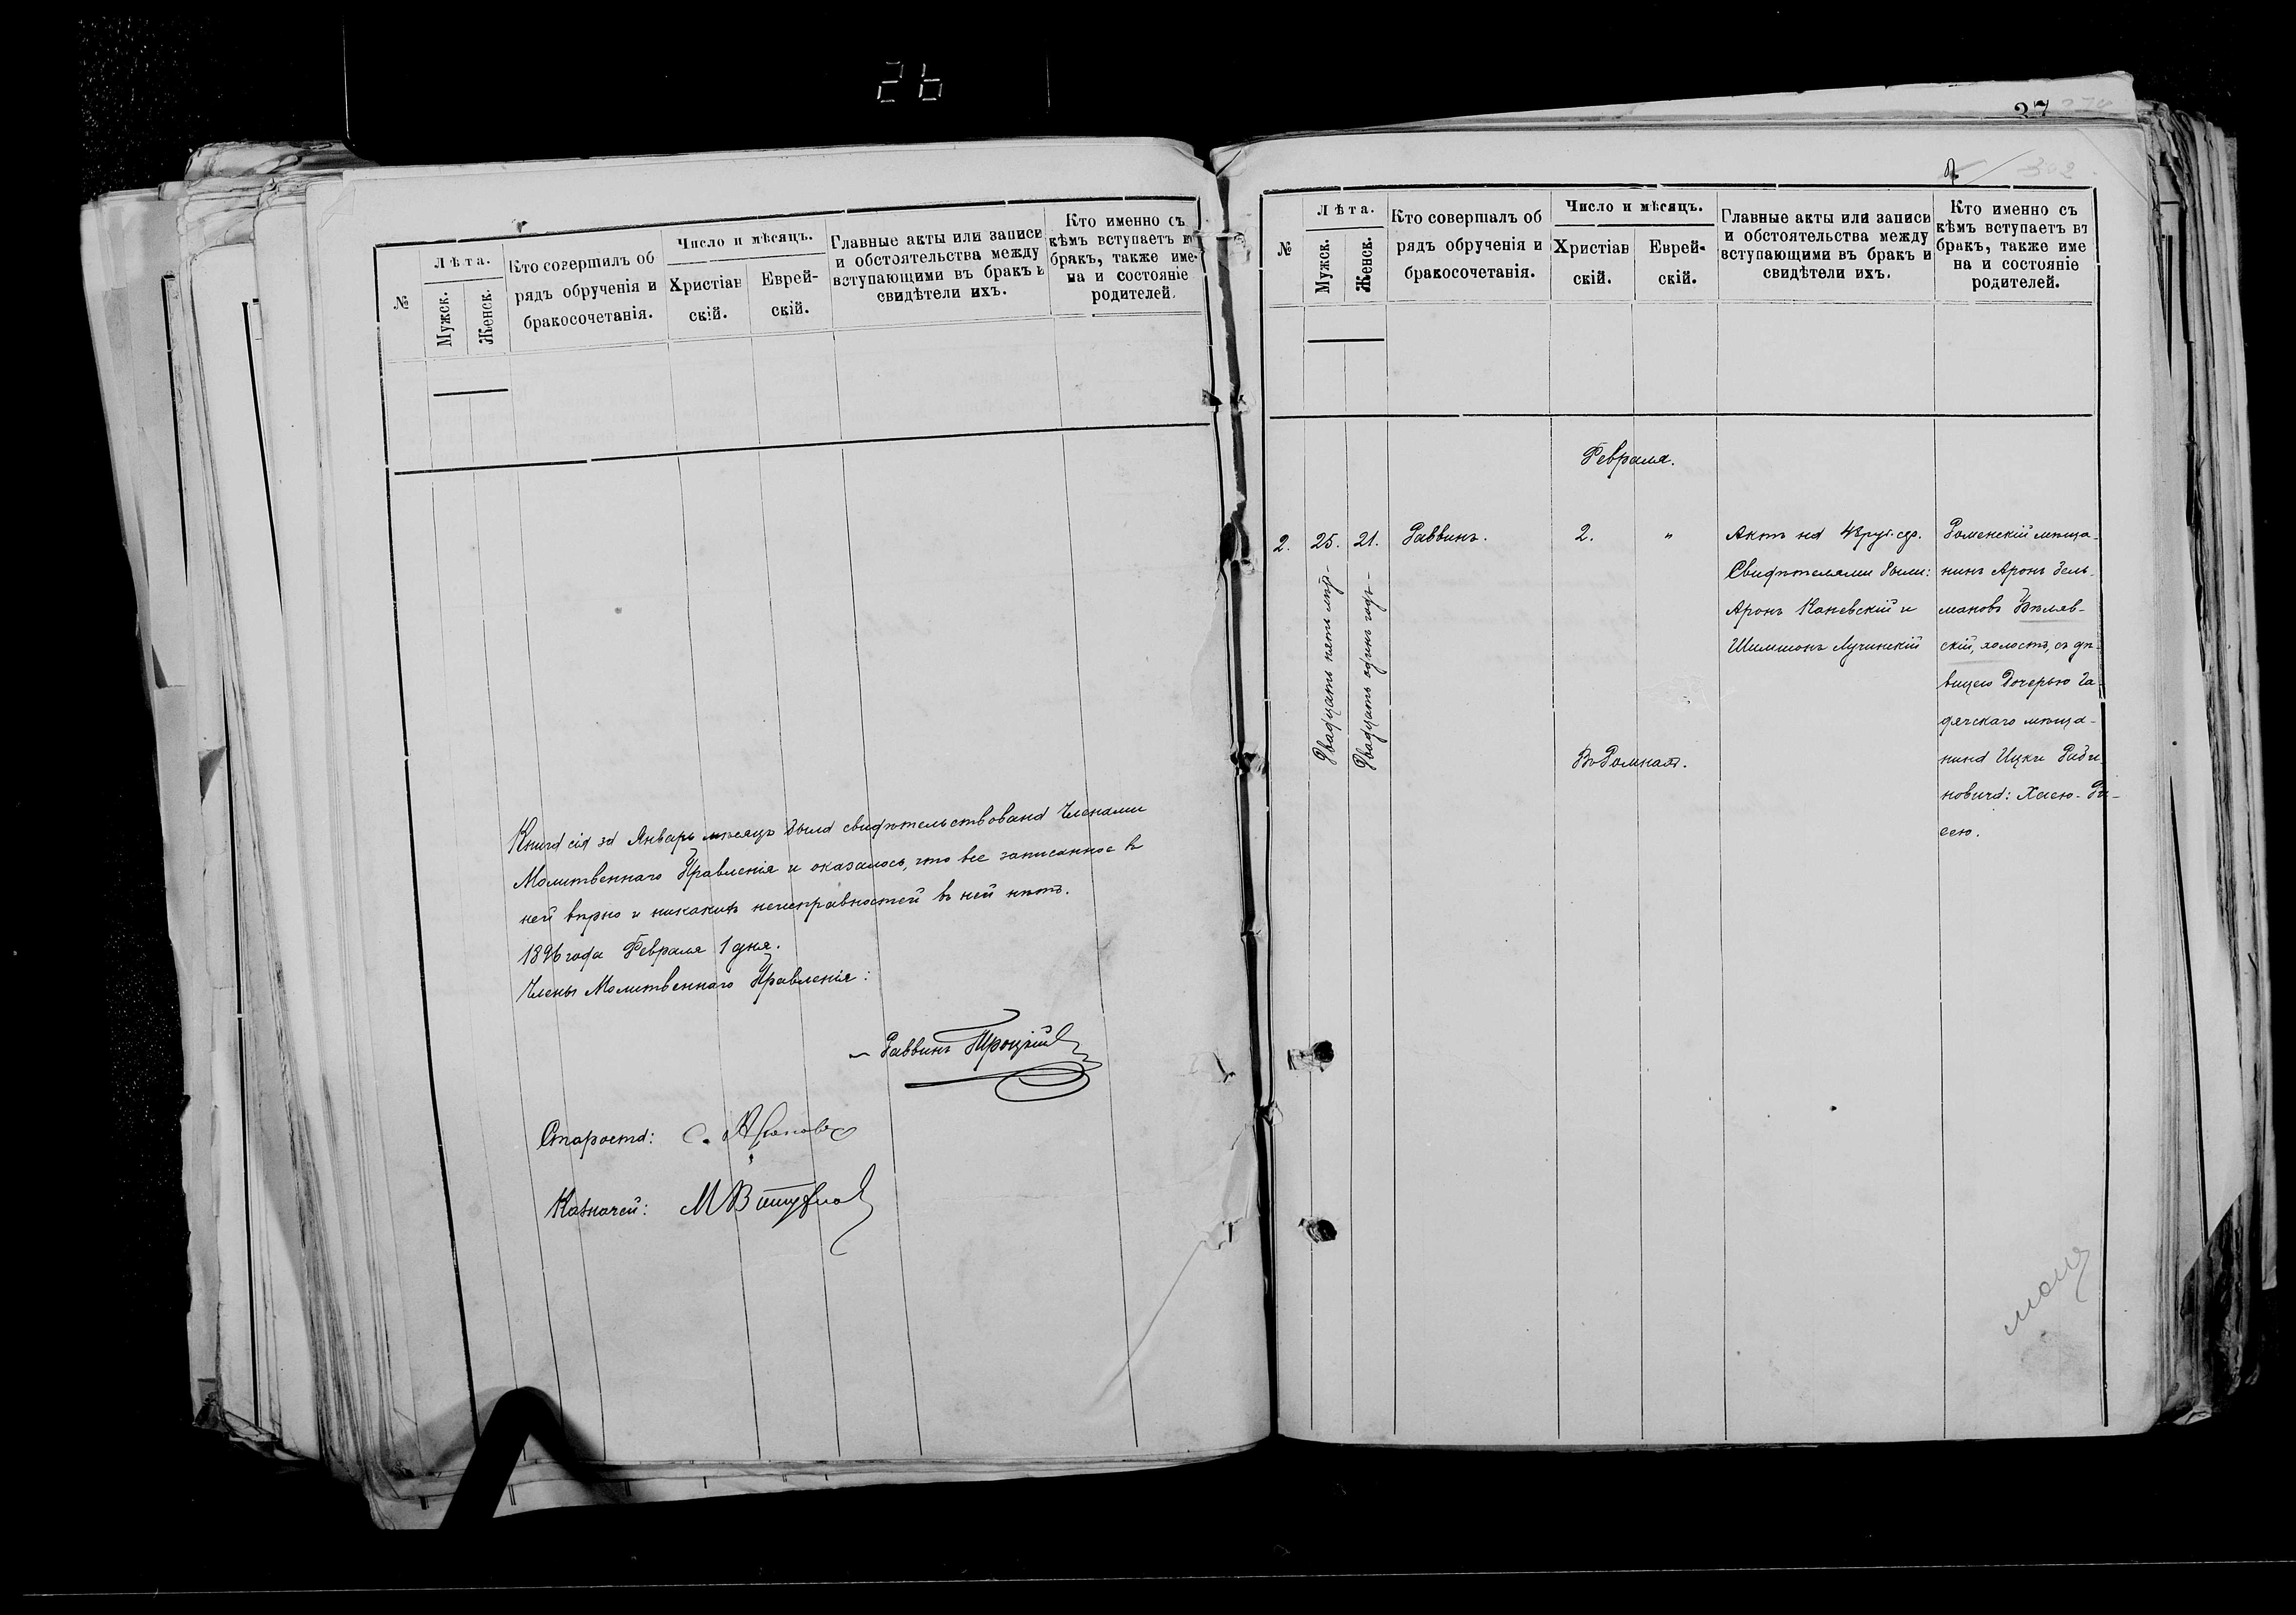 26
№
Лѣта.
Мужск.
Женск.
Кто совершилъ об
рядъ обрученія и
бракосочетанія.
Число и мѣсяцъ.
Христіан
скій.
Еврей-
скій.
Главные акты или записи
и обстоятельства между
вступающими въ бракъ и
свидѣтели ихъ.
Кто именно съ
кѣмъ вступаетъ въ
бракъ, также име-
на и состояніе
родителей.
Книга сія за Январь мѣсяцъ была свидѣтельствована Членами
Молитвеннаго Правленія и оказалось, что все записанное въ
ней вѣрно и никакихъ неисправностей въ ней нѣтъ.
1896 года Февраля 1 дня.
Члены Молитвеннаго Правленія:
Раввинъ Троцкій
Староста: С.
Казначей: М
37
302
№
Лѣта.
Мужск.
Женск.
Кто совершалъ об
рядъ обрученія и
бракосочетанія.
Число и мѣсяцъ.
Христіан
скій.
Еврей-
скій.
Главные акты или записи
и обстоятельства между
вступающими въ бракъ и
свидѣтели ихъ.
Кто именно съ
кѣмъ вступаетъ въ
бракъ, также име
на и состояніе
родителей.
Февраля.
2.
25.
Двадцать пять лѣтъ
21.
Двадцать одинъ годъ
Раввинъ.
2.
"
Въ Ромнахъ.
Актъ на 48 руб. сер.
Свидѣтелями были:
Аронъ Каневскій и
Шимшонъ Лучинскій
Роменскій мѣща-
нинъ Аронъ Зель-
мановъ Бѣляв-
скій, холостъ, съ дѣ-
вицею дочерью Га-
дячскаго мѣща-
нина Ицки Раби-
новича: Хаею-Ри-
сею.